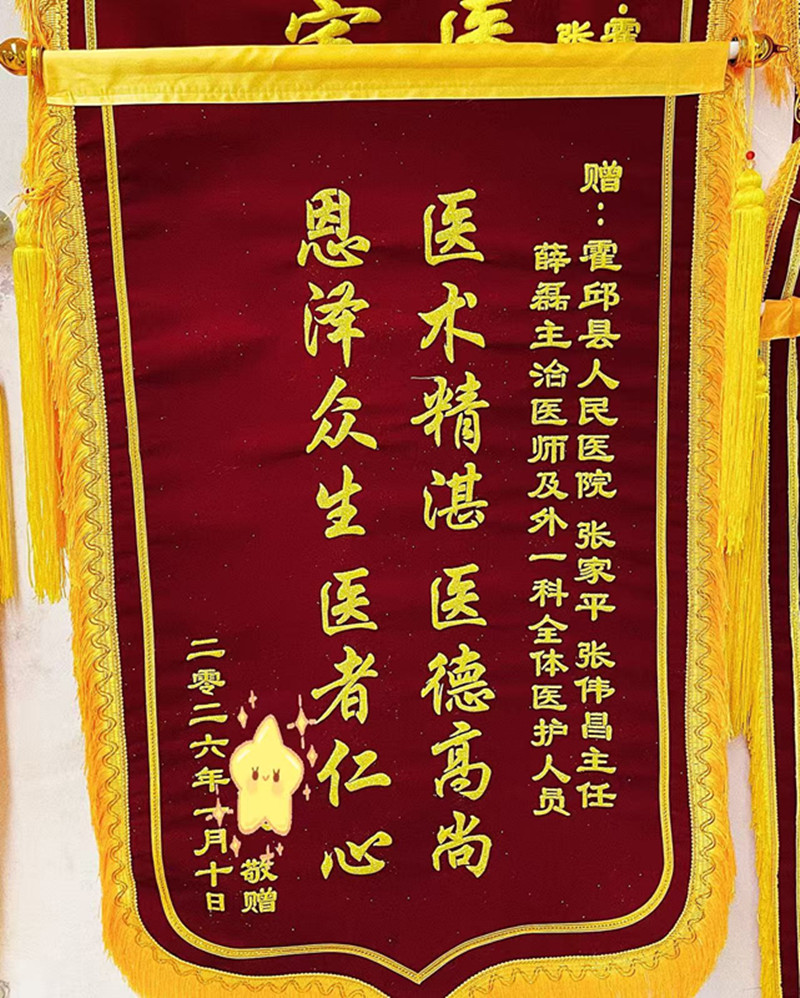 赠：霍邱县人民医院 张家平 张伟昌主任
薛磊主治医师及外一科全体医护人员
医术精湛 医德高尚
恩泽众生 医者仁心
敬赠
二零二六年一月十日
医
张霍